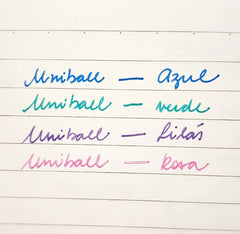 Uniball — Azul
Uniball — verde
Uniball — Lilás
Uniball — Rosa